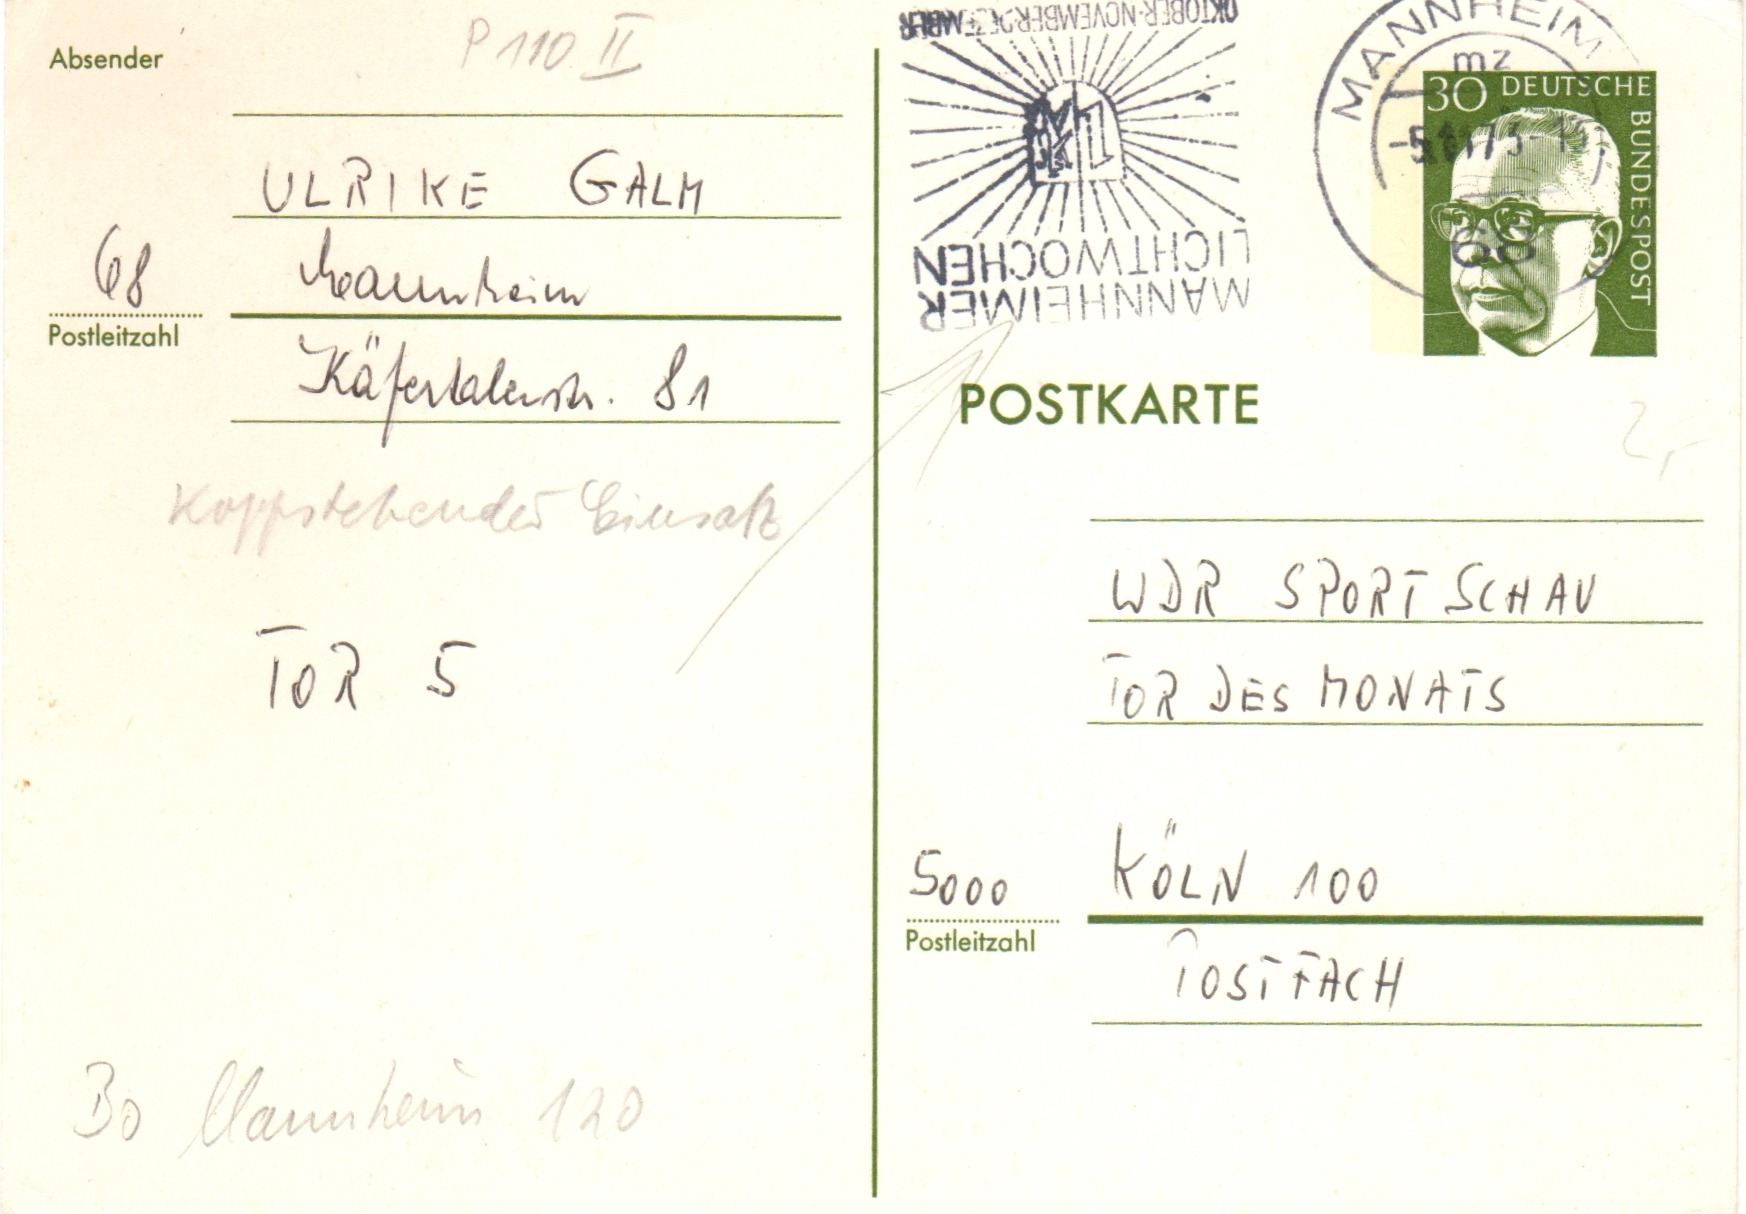 Absender
P 110 II
ULRIKE GALM
68 Mannheim
Postleitzahl
Käfertalerstr. 81
Koppstehender Einsatz
TOR 5
Bo Mannheim 120
OKTOBER-NOVEMBER-DEZEMBER
MANNHEIMER
LICHTWOCHEN
MANNHEIM
mz
68
30 DEUTSCHE
BUNDESPOST
POSTKARTE
2,-
WDR SPORTSCHAU
TOR DES MONATS
5000 KÖLN 100
Postleitzahl
POSTFACH